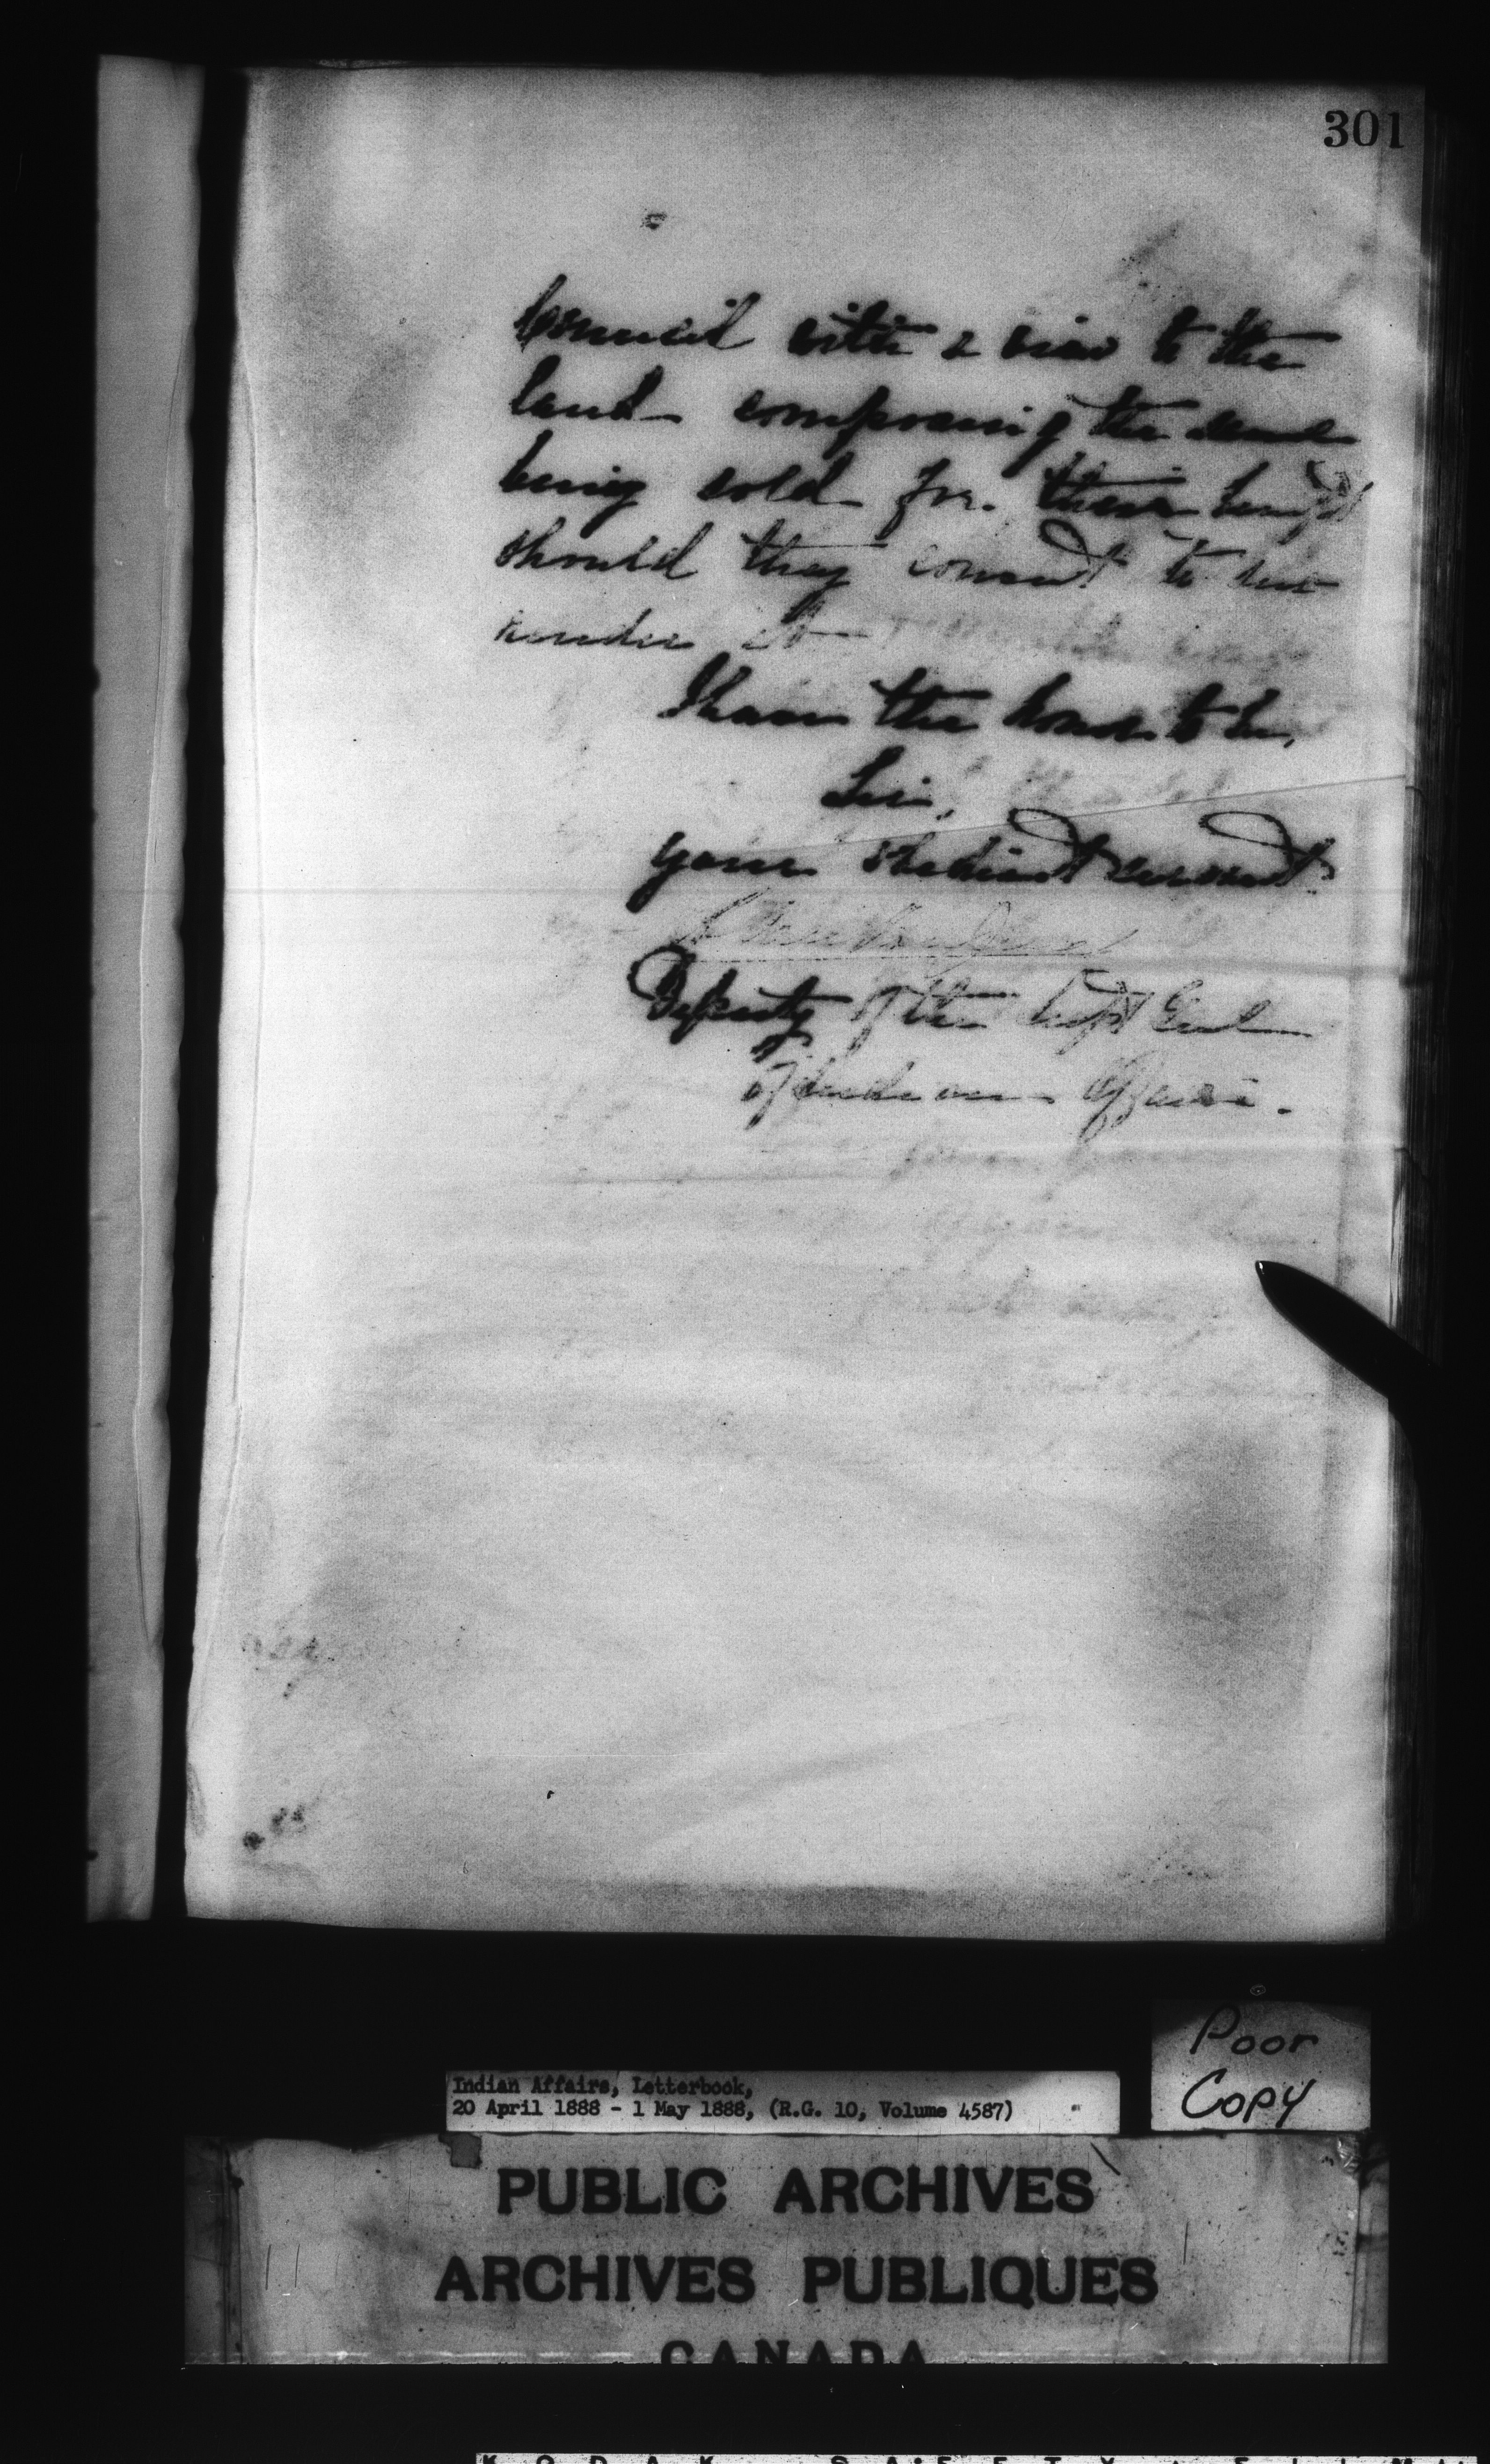 301
Council with a view to the
land comprising the same
being sold for their benefit
should they consent to sur
render it
I have the honor to be,
Sir,
Your obedient servant
Deputy of the Supt Genl
of Indian Affairs.
Poor
Copy
Indian Affairs, Letterbook,
20 April 1888 - 1 May 1888, (R.G. 10, Volume 4587)
PUBLIC ARCHIVES
ARCHIVES PUBLIQUES
CANADA
KODAK SAFETY